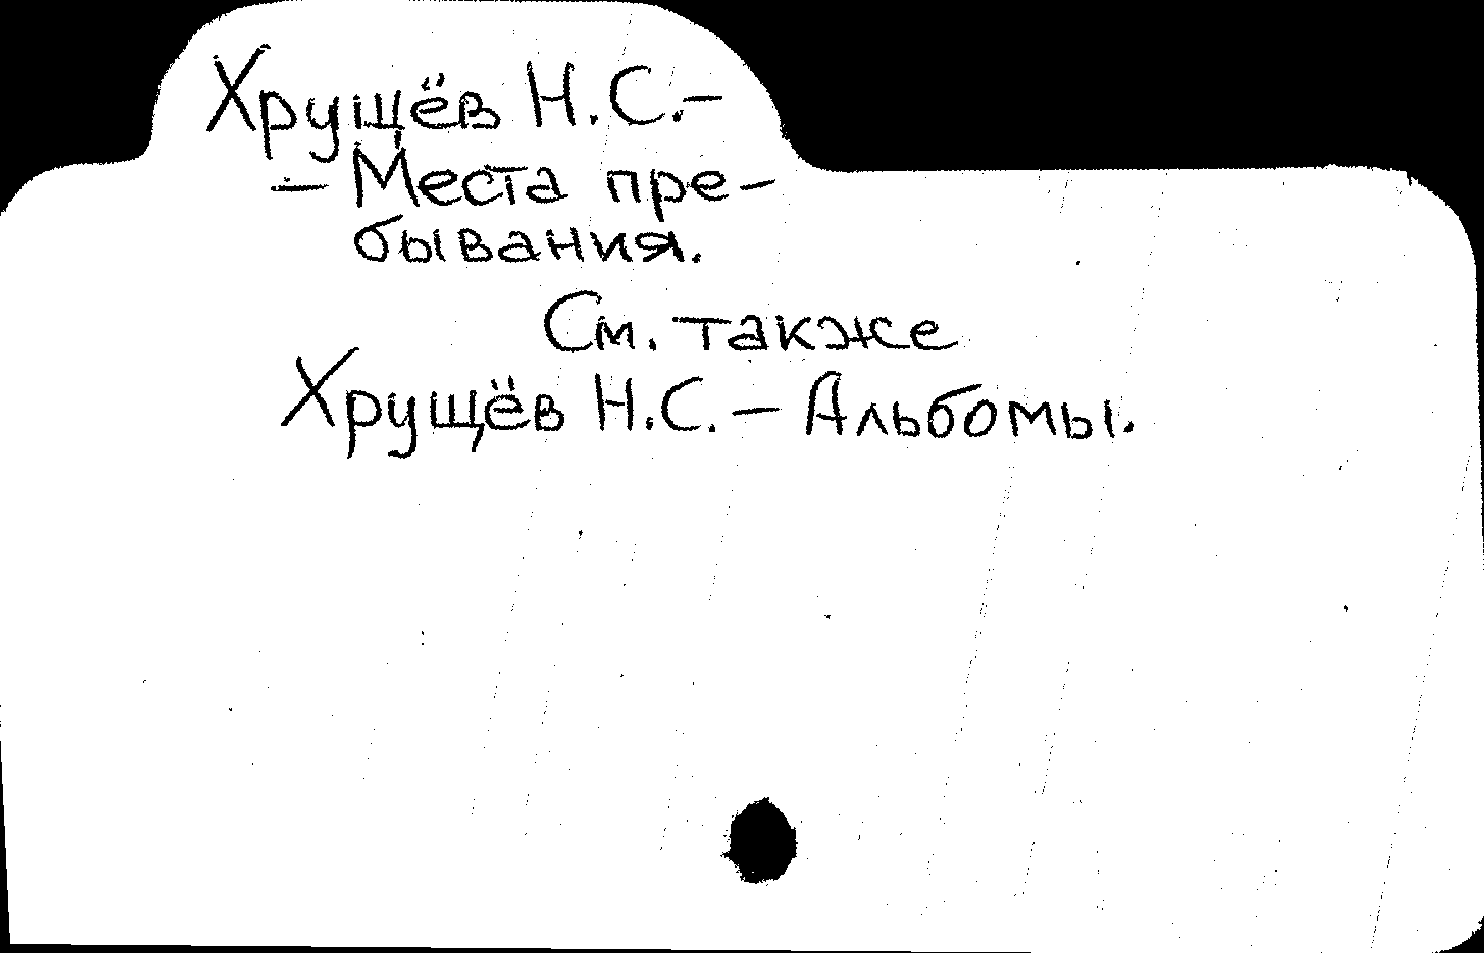 Хрущёв Н.С.–
– Места пре–
бывания.
См. также
Хрущёв Н.С. – Альбомы.